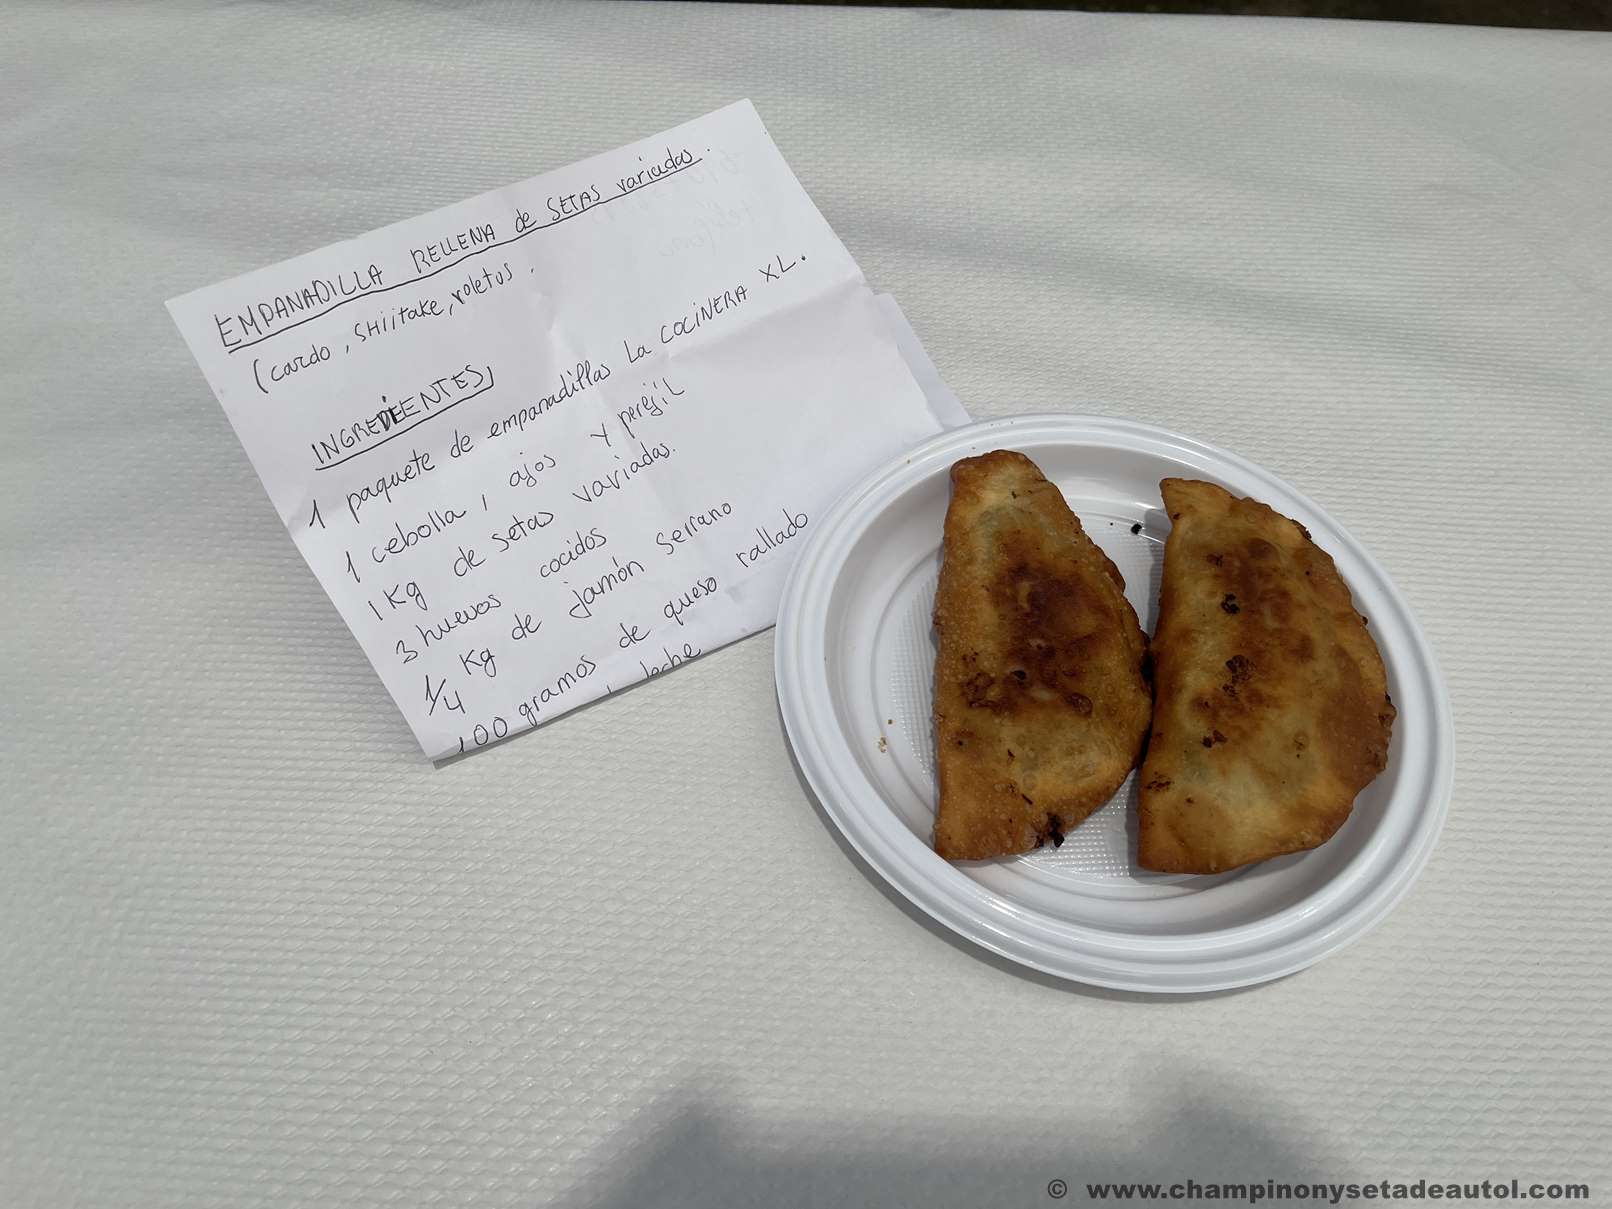 EMPANADILLA RELLENA de SETAS variadas.
(cardo, SHiitake, voletus.
INGREDIENTES
1 paquete de empanadillas La COCINERA XL.
1 cebolla, ajos y perejil
1 Kg de setas variadas.
3 huevos cocidos
1/4 Kg de jamón serrano
100 gramos de queso rallado
leche
© www.champinonysetadeautol.com